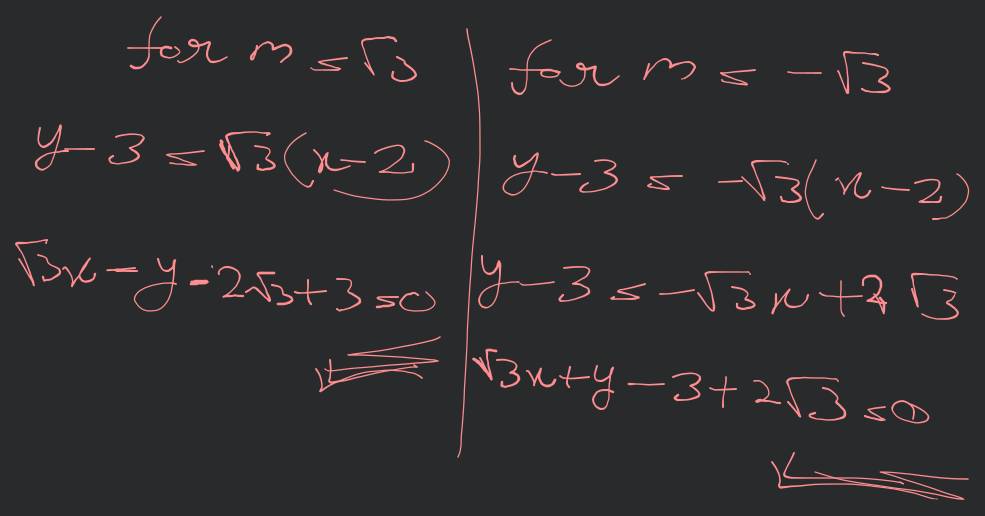 for m = √3
y - 3 = √3(x - 2)
√3x - y - 2√3 + 3 = 0
for m = -√3
y - 3 = -√3(x - 2)
y - 3 = -√3x + 2√3
√3x + y - 3 + 2√3 = 0